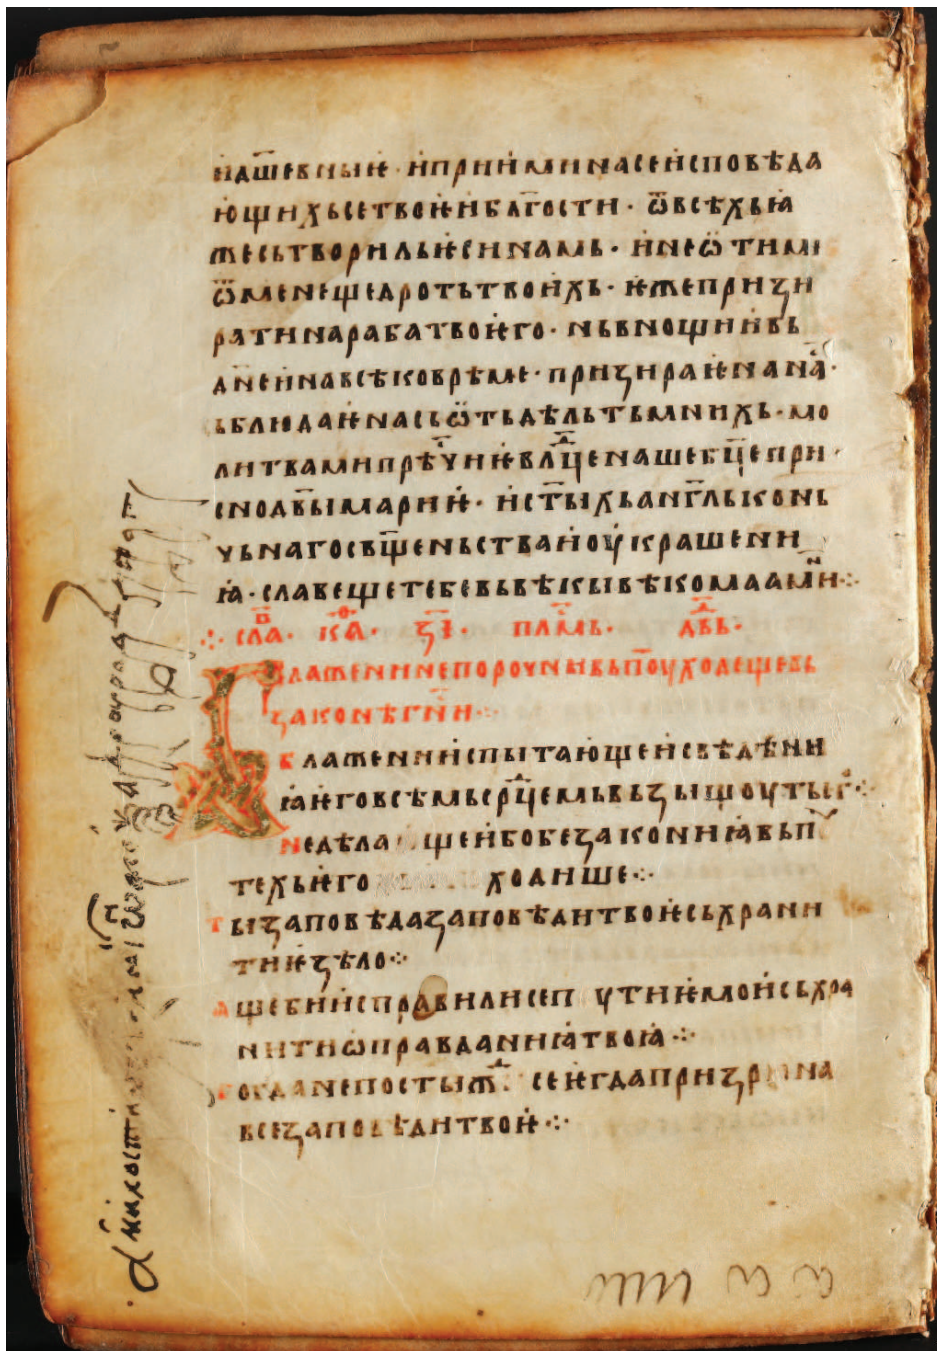 и҆дш҃евныѥ · и҆прии҆ми насеи҆споведа
ющихьсетвоѥи҆бл҃гости · ѿвсѣхьꙗ
жесьтворильѥсинамь · и҆нѥѿтими
ѿменещедротьтвоихь · ѥжепризи
рꙗтинарабатвоѥго · ньвнощиивь
дн҃еи҆навсѣковрѣме · призираѥнана҃ ·
сьблюдаѥнасьѿтьдѣльтьмнихь · мо
литвамипрѣч҃иѥвлд҃ценашебц҃епри
снодв҃ымариѥ · и҆ст҃ыхьанг҃льконь
чьнагосвщ҃еньстваи҆оукрашени
ꙗ · славещетебевьвѣкывѣкомаами҃н ⁘
⁘ сла҃в · каѳ҃ · зı҃ · пл҃мь · дв҃дь ·
Блаженинепорочнивьп҃оуходещевь
законѣг҃ни ⁘
блажении҆спытающеи҆свѣдѣни
ꙗѥговсѣмьср҃цемьвьзыщоутьѥг҃ ⁘
неделающеи҆бобезакониꙗвьп҃
техьѥго ходише ⁘
тызаповѣдазаповѣдитвоѥсьхрани
тиѥзѣло ⁘
ащебии҆справилисеп утиѥмоѥсьхра
нитиѡправданиꙗтвоꙗ ⁘
тогданепостыж҃ сеѥгдапризр ина
всезаповѣдитвоѥ ⁘